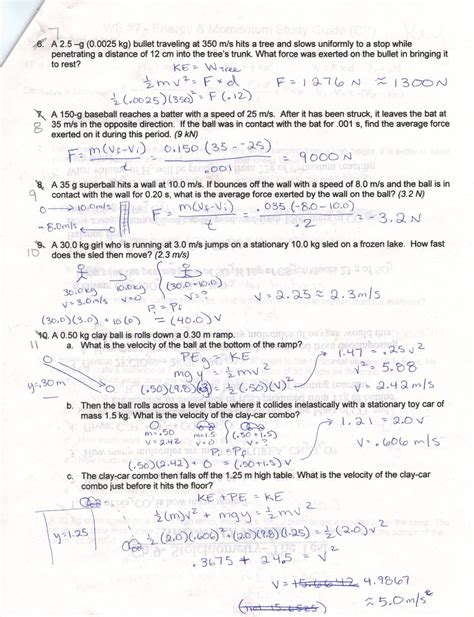 7
6. A 2.5 –g (0.0025 kg) bullet traveling at 350 m/s hits a tree and slows uniformly to a stop while
penetrating a distance of 12 cm into the tree's trunk. What force was exerted on the bullet in bringing it
to rest?
KE = W Tree
½mv² = F×d F = 1276 N ≈ 1300 N
½(.0025)(350)² = F(.12)
7. A 150-g baseball reaches a batter with a speed of 25 m/s. After it has been struck, it leaves the bat at
8 35 m/s in the opposite direction. If the ball was in contact with the bat for .001 s, find the average force
exerted on it during this period. (9 kN)
F = m(Vf-Vi) / t = 0.150 (35 - -25) / .001 = 9000 N
8. A 35 g superball hits a wall at 10.0 m/s. If bounces off the wall with a speed of 8.0 m/s and the ball is in
9 contact with the wall for 0.20 s, what is the average force exerted by the wall on the ball? (3.2 N)
O→10.0m/s F = m(Vf-Vi) / t = .035 (-8.0-10.0) / .2 = -3.2 N
-8.0m/s
9. A 30.0 kg girl who is running at 3.0 m/s jumps on a stationary 10.0 kg sled on a frozen lake. How fast
10 does the sled then move? (2.3 m/s)
30.0kg 10.0kg (30.0+10.0)
v=3.0m/s v=0 v=?
Pi = Pf v = 2.25 ≈ 2.3m/s
(30.0)(3.0) + 10(0) = (40.0)v
10. A 0.50 kg clay ball is rolls down a 0.30 m ramp.
11 a. What is the velocity of the ball at the bottom of the ramp?
PEg = KE 1.47 = .25v²
mgy = ½mv² v² = 5.88
y=.30m (.50)(9.8)(.3) = ½(.50)(V)² v = 2.42 m/s
b. Then the ball rolls across a level table where it collides inelastically with a stationary toy car of
mass 1.5 kg. What is the velocity of the clay-car combo?
m=.50 m=1.5 (.50+1.5) 1.21 = 2.0v
v=2.42 v=0 v=?
Pi = Pf v = .606 m/s
(.50)(2.42) + 0 = (.50+1.5)v
c. The clay-car combo then falls off the 1.25 m high table. What is the velocity of the clay-car
combo just before it hits the floor?
KE + PE = KE
½(m)v² + mgy = ½mv²
y=1.25 ½(2.0)(.606)² + (2.0)(9.8)(1.25) = ½(2.0)v²
.3675 + 24.5 = v²
v = 15.6642 4.9867
≈ 5.0m/s